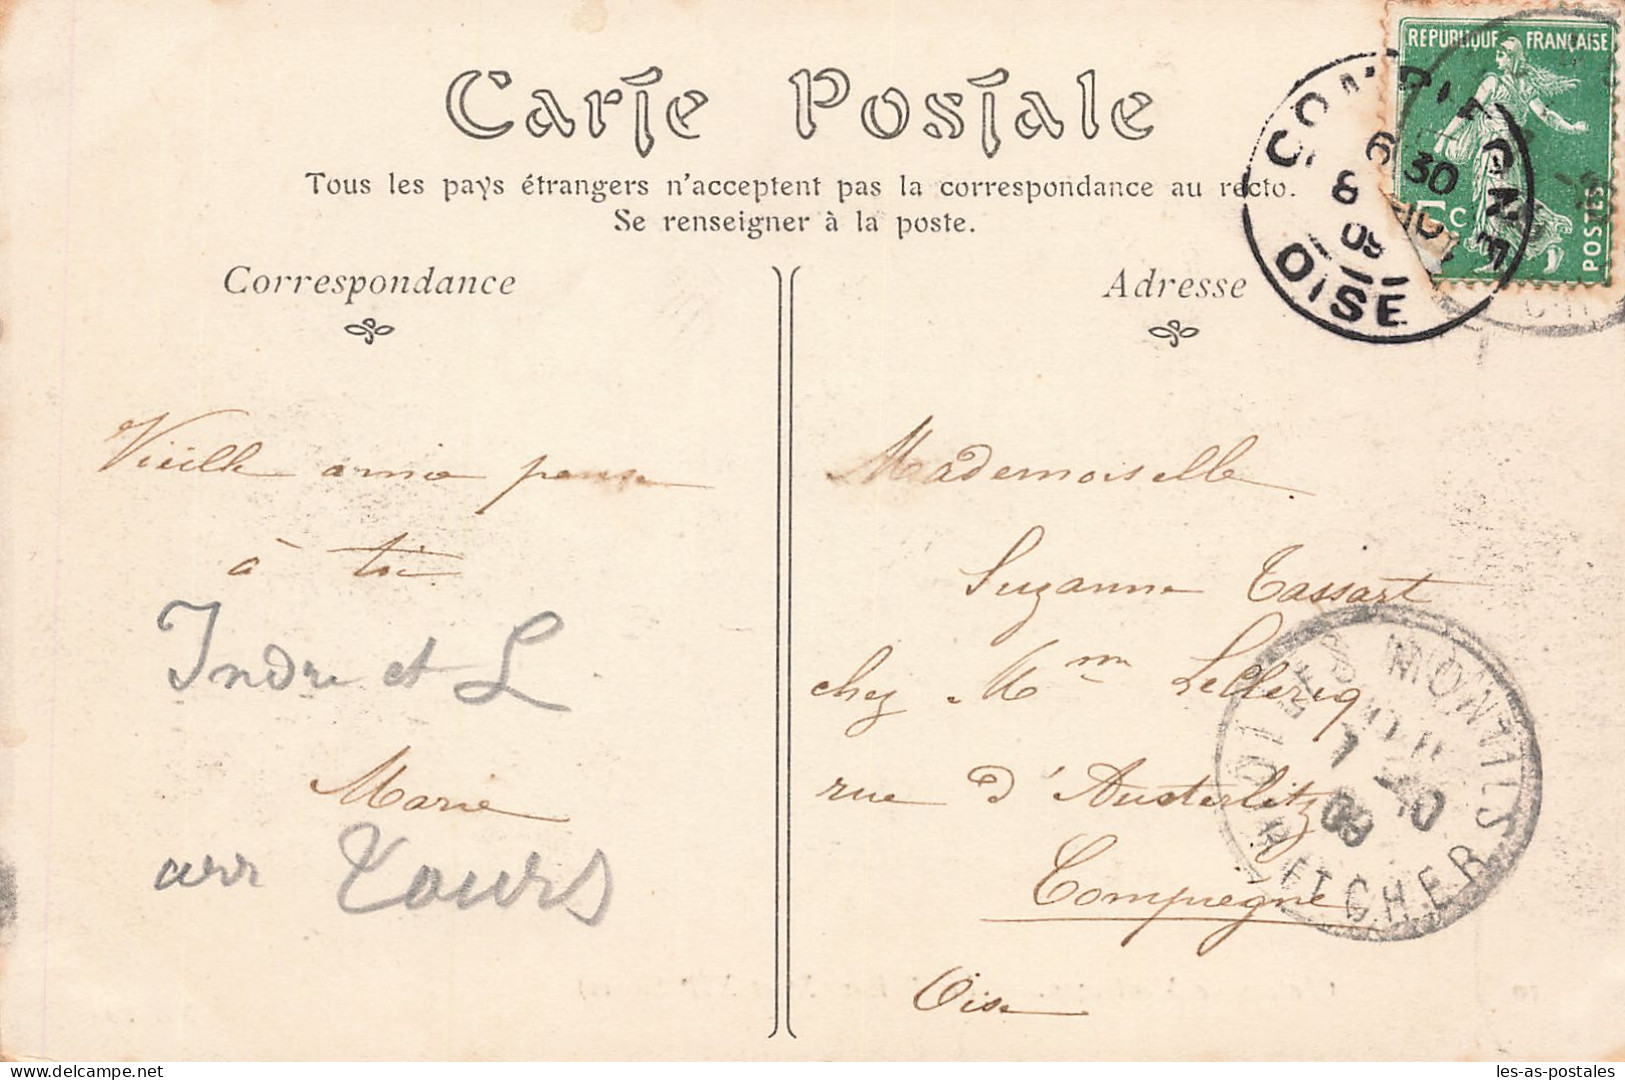 Carte Postale
Tous les pays étrangers n'acceptent pas la correspondance au recto.
Se renseigner à la poste.
Correspondance
Adresse
REPUBLIQUE FRANÇAISE
POSTES
5c
COMPIEGNE
6 30
8 AOUT
09
OISE
Vieille amie pense
à toi
Indre et L
Marie
arr Tours
Mademoiselle
Suzanne Tassart
chez Mme Leclercq
rue d'Austerlitz
Compiègne
Oise
LES MONTILS
7
09
LOIR ET CHER
les-as-postales